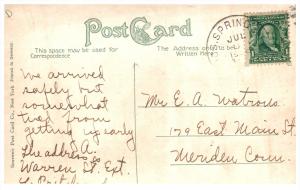 D
Post Card
This space may be used for
Correspondence
The Address only to be
Written Here
SPRING
JUL
We arrived
safely but
somewhat
tired from
getting up early
The address
Warren St. Ext.
Mr. E. A. Watrous.
179 East Main St
Meriden Conn.
Souvenir Post Card Co., New York